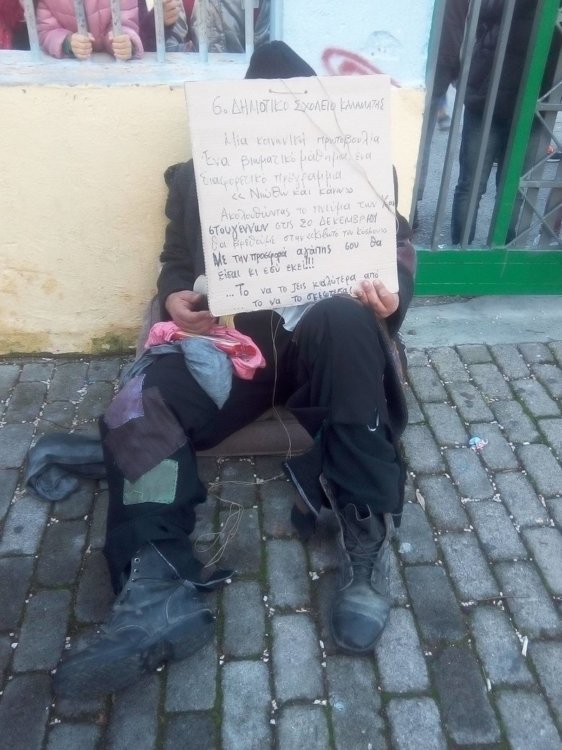 6ο ΔΗΜΟΤΙΚΟ ΣΧΟΛΕΙΟ ΚΑΛΑΜΑΤΑΣ
Μία κοινωνική πρωτοβουλία
Ένα βιωματικό μάθημα, ένα
διαφορετικό πρόγραμμα
<< Νιώθω και κάνω>>
Ακολουθώντας το πνεύμα των Χρι
στουγέννων στις 20 ΔΕΚΕΜΒΡΙΟΥ
θα βρεθούμε στην
ΜΕ την προσφορά αγάπης σου θα
είσαι κι εσύ εκεί!!!
... Το να το ζεις καλύτερα από
το να το σκέφτεσαι